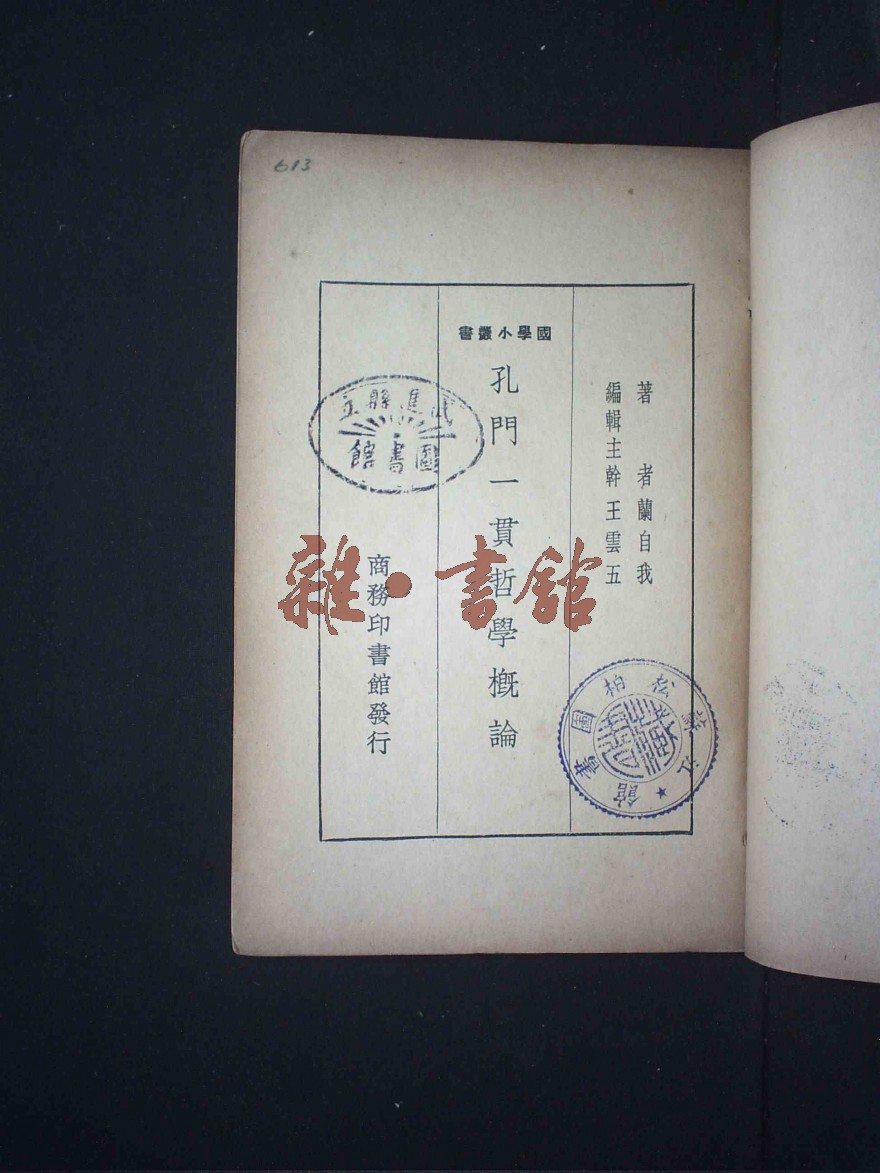 613
著者蘭自我
編輯主幹王雲五
國學小叢書
孔門一貫哲學概論
商務印書館發行
武進縣立
圖書館
松柏圖書館
雜·書館